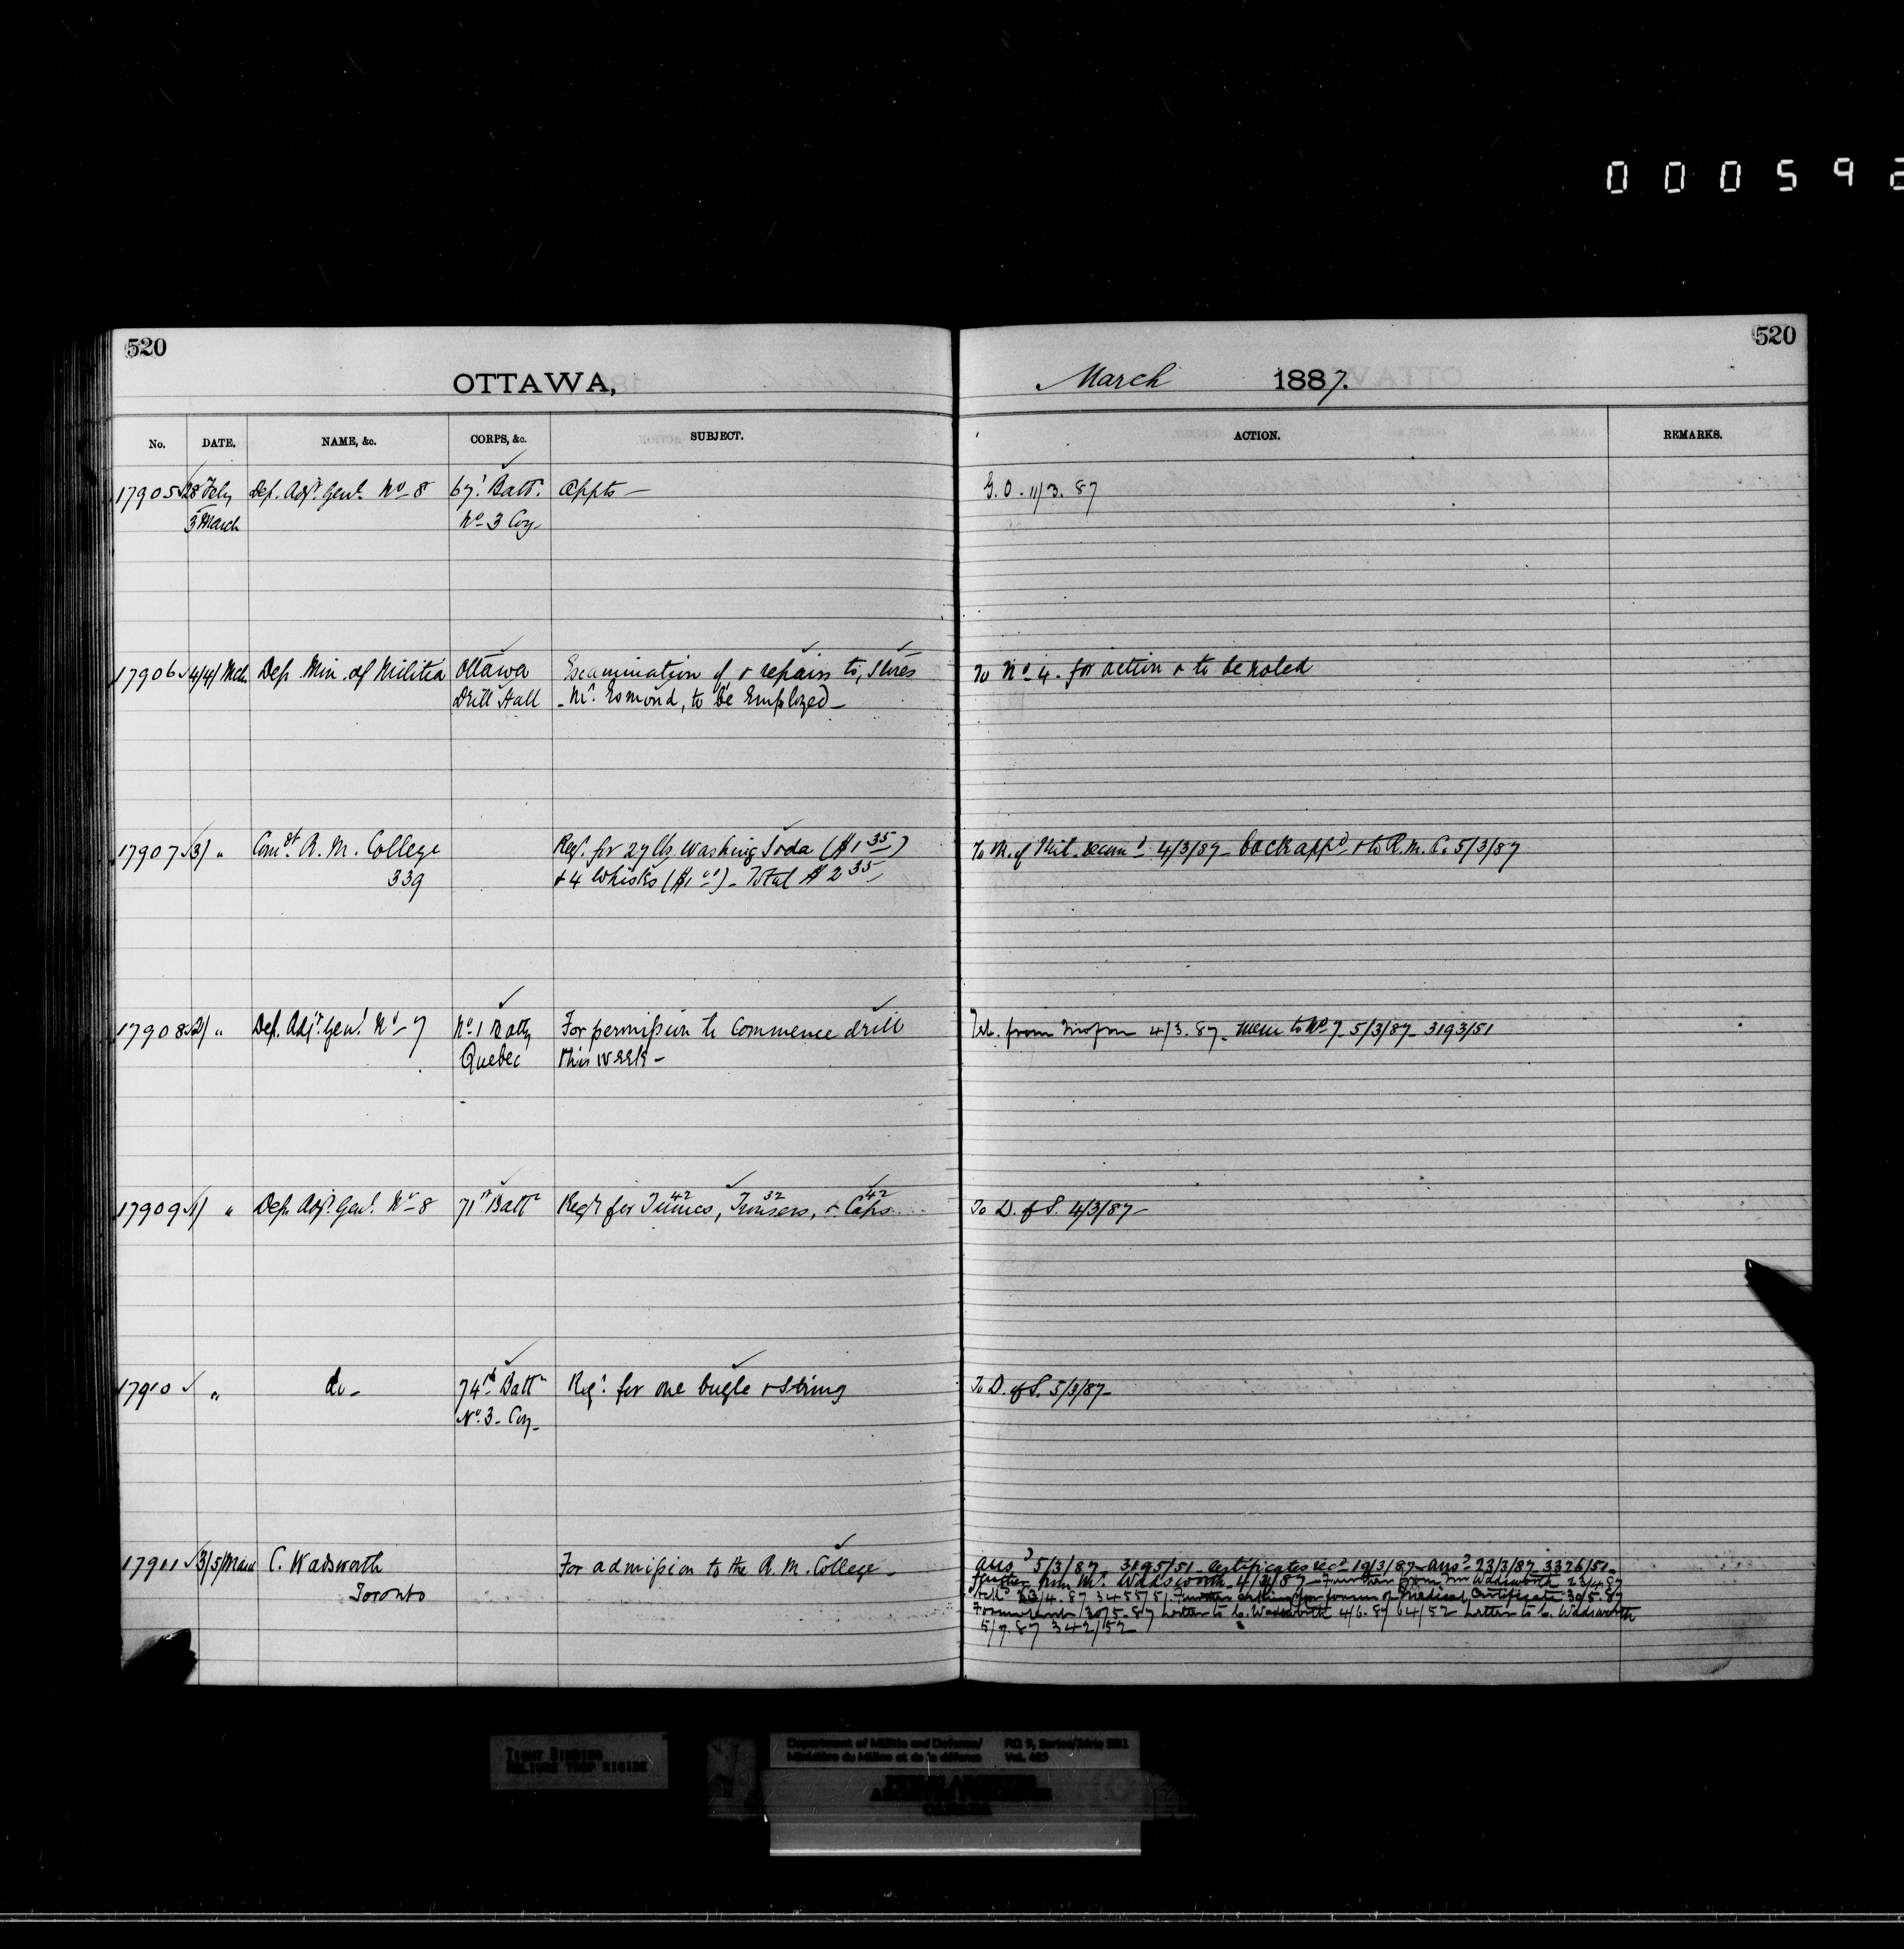 000592
520
520
OTTAWA,
March 1887.
No. DATE. NAME, &c. CORPS, &c. SUBJECT. ACTION. REMARKS.
17905 28 Feby Dep. Adjt. Genl. No 8 67th Batt. Appts — G.O. 11/3.87
3 March No 3 Coy
17906 4/4/ Mch. Dep. Min. of Militia Ottawa Examination of & repairs to, stores To No 4. for action & to be noted
Drill Hall - Mr. Esmond, to be Employed -
17907 3/ " Comdt. R. M. College Reqn. for 27 lbs Washing Soda ($1 35) To M. of Mil. recomd 4/3/87 - back appd & to R.M.C. 5/3/87
339 & 4 Whisks ($1 00) - Total $2 35
17908 2/ " Dep. Adjt. Genl. No - 7 No. 1 Batty For permission to commence drill Tel. from 4/3.87 - mem to No 7 - 5/3/87 - 3193/51
Quebec this week -
17909 1/ " Dep. Adjt. Genl. No 8 71st Battn Reqn for 42 Tunics, 32 Trousers, & 42 Caps To D. of S. 4/3/87 -
17910 " do - 74th Battn Reqn. for one bugle & string To D. of S. 5/3/87 -
No. 3 - Coy -
17911 3/5/ March C. Wadsworth For admission to the R. M. College - ansd 5/3/87 3195/51 - Certificates recd 19/3/87 - ansd 23/3/87 3326/51 -
Toronto further from Mr. Wadsworth - 4/87 - Further from Mr Wadsworth 23/4.87
/4.87 3455/51. Further asking for forms of Medical Certificate 30/5.87
Forms sent 30/5.87 Letter to C. Wadsworth 4/6.87 64/52 Letter to C. Wadsworth
5/7.87 342/52
TIGHT BINDING
RELIURE TROP RIGIDE
Department of Militia and Defence/ RG 9, Series/Série IIB1
Ministère du Milice et de la défense Vol. 
PUBLIC ARCHIVES
ARCHIVES PUBLIQUES
CANADA